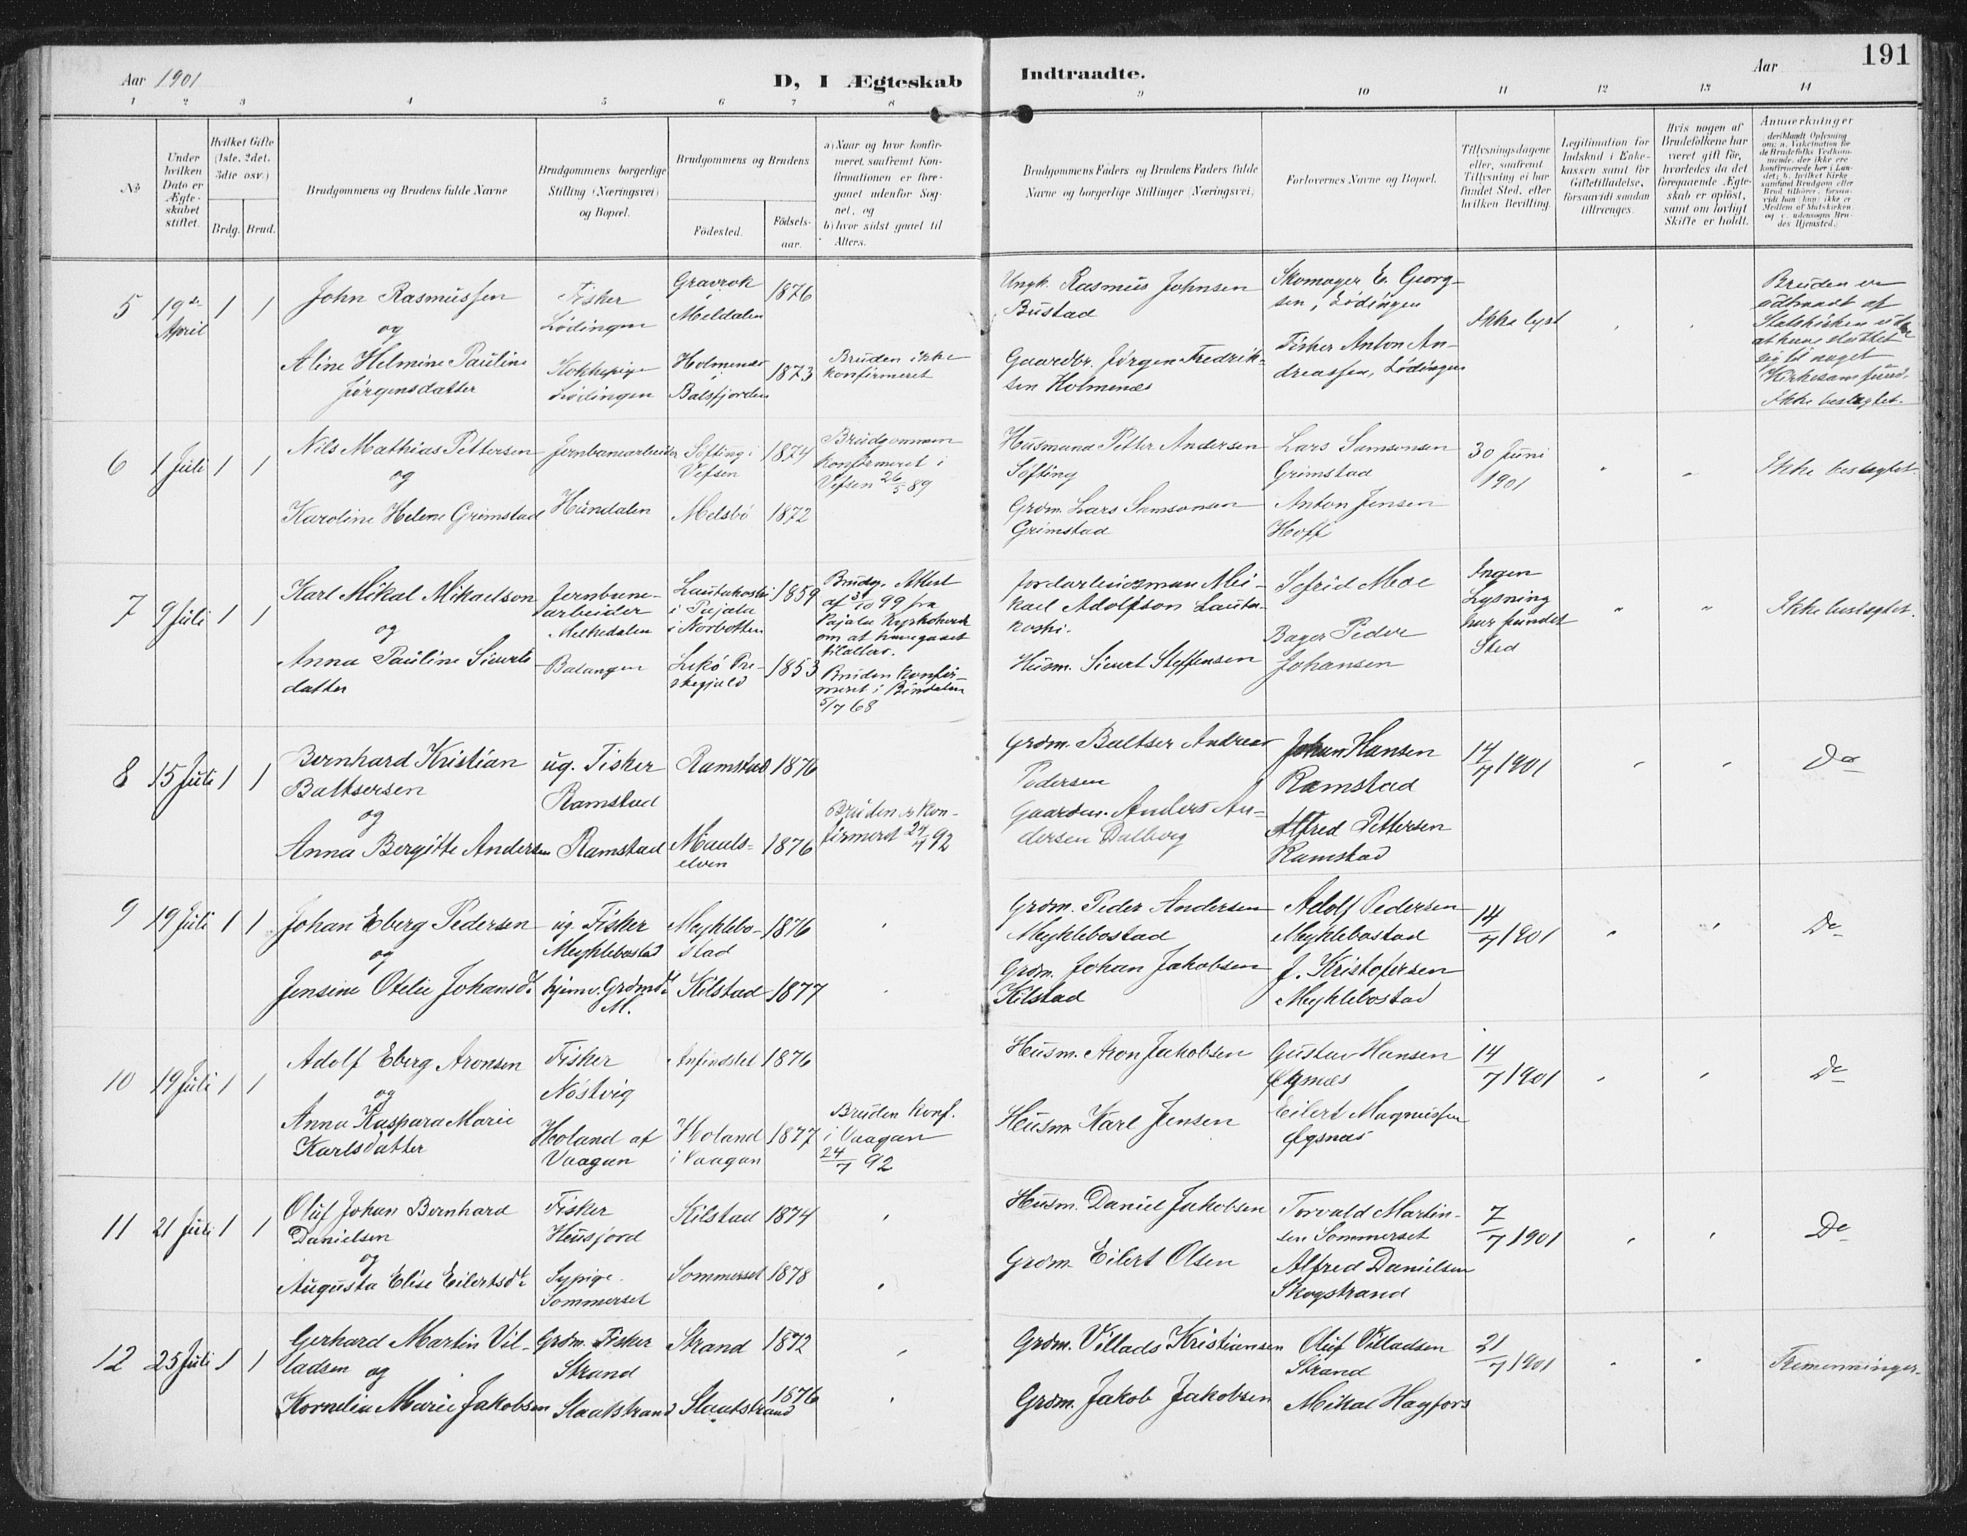 191
Aar 1901
D, I Ægteskab
Indtraadte.
Aar
1 2 3 4 5 6 7 8 9 10 11 12 13 14
No
Under hvilken Dato er Ægteskabet stiftet.
Hvilket Gifte (1ste, 2det, 3die osv.)
Brdg.
Brud.
Brudgommens og Brudens fulde Navne
Brudgommens borgerlige Stilling (Næringsvei) og Bopæl.
Brudgommens og Brudens
Fødested.
Fødselsaar.
a) Naar og hvor konfirmeret, saafremt Konfirmationen er foregaaet udenfor Sognet, og
b) hvor sidst gaaet til Alters.
Brudgommens Faders og Brudens Faders fulde Navne og borgerlige Stillinger (Næringsvei)
Forlovernes Navne og Bopæl.
Tillysningsdagene eller, saafremt Tillysning ei har fundet Sted, efter hvilken Bevilling.
Legitimation for Indskud i Enkekassen samt for Giftetilladelse, forsaavidt saadan tiltrænges.
Hvis nogen af Brudefolkene har været gift før, hvorledes da det foregaaende Ægteskab er opløst, samt om lovligt Skifte er holdt.
Anmærkninger
5
19de April
1
1
John Rasmussen
og
Aline Helmine Pauline
Jørgensdatter
Fisker
Lødingen
Kokkepige
Lødingen
Gravrok
i
Meldalen
1876
Holmenæs
i
Balsfjorden
1873
Bruden ikke
konfirmeret
Ungk. Rasmus Johnsen
Bustad
Gaardbr. Jørgen Fredrik-
sen Holmenæs
Skomager E. Georg-
sen, Lødingen
Fisker Anton An-
dreassen, Lødingen
Ikke lyst
Bruden er
udtraadt af
Statskirken uden
at have sluttet
sig til noget
Kirkesamfund.
Ikke beslægtet.
6
1 Juli
1
1
Nils Mathias Pettersen
og
Karoline Helene Grimstad
Jernbanearbeider
Hundalen
Søfting i
Vefsen
1874
Melsbø
1872
Brudgommen
konfirmeret i
Vefsen 26/5 89
Husmand Petter Andersen
Søfting
Grdm. Lars Samsonsen
Grimstad
Lars Samsonsen
Grimstad
Anton Jensen
Hoff
30 Juni
1901
Ikke beslægtet.
7
9 Juli
1
1
Karl Mikal Mikaelson
og
Anna Pauline Siverts-
datter
Jernbane-
arbeider
Melkedalen
Balangen
Lautakoski
i Pajala
i Norbotten
1859
Lekø Pre-
stegjeld
1853
Brudg. Attest
af 3/10 99 fra
Pajala Kyrkoherde
om at have gaaet
til alters.
Bruden konfir-
meret i Bindalen
5/7 68
Mi-
kael Adolfson Lauta-
koski.
Husm. Sivert Steffensen
Sefrid Moe
Bager Peder
Johansen
Ingen
Lysning
har fundet
Sted
Ikke beslægtet.
8
15 Juli
1
1
Bernhard Kristian
Baltsersen
og
Anna Bergitte Andersen
ug. Fisker
Ramstad
Ramstad
Ramstad
1876
Maals-
elven
1876
Bruden er Kon-
firmeret 24/7 92
Grdm. Baltser Andreas
Pedersen
Gaardm. Anders An-
dersen Dalberg
Johan Hansen
Ramstad
Alfred Pettersen
Ramstad
14/7 1901
Do
9
19 Juli
1
1
Johan Eberg Pedersen
og
Jensine Otelie Johansdt.
ug. Fisker
Meyklebostad
hjemv. Grdmdt.
M.
Meyklebo-
stad
1876
Kilstad
1877
Grdm. Peder Andersen
Meyklebostad
Grdm. Johan Jakobsen
Kilstad
Adolf Pedersen
Meyklebostad
J. Kristofersen
Meyklebostad
14/7 1901
Do
10
19 Juli
1
1
Adolf Eberg Aronsen
og
Anna Kaspara Marie
Karlsdatter
Fisker
Nøstvig
Holand af
Vaagan
Anfindslet
1876
Holand
i Vaagan
1877
Bruden konf.
i Vaagan
24/7 92
Husm. Aron Jakobsen
Husm. Karl Jensen
Gustav Hansen
Øgnæs
Eilert Magnussen
Øgsnæs
14/7 1901
Do
11
21 Juli
1
1
Oluf Johan Bernhard
Danielsen
og
Augusta Elise Eilertsdt.
Fisker
Husjord
Sypige.
Sommerset
Kilstad
1874
Sommerset
1878
Husm. Daniel Jakobsen
Grdm. Eilert Olsen
Torvald Martin-
sen Sommerset
Alfred Danielsen
Skogstrand
7/7 1901
Do
12
25 Juli
1
1
Gerhard Martin Vil-
ladsen og
Kornelia Marie Jakobsen
Grdm. Fisker
Strand
Slaatstrand
Strand
1872
Slaatstrand
1876
Grdm. Villads Kristiansen
Grdm. Jakob Jakobsen
Oluf Villadsen
Strand
Mikal Hagfors
21/7 1901
Fremenninger.